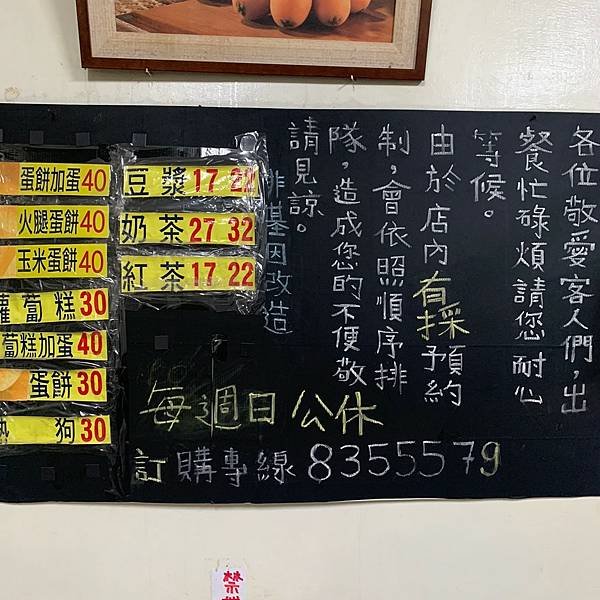 各位敬愛客人們,出
餐忙碌煩請您耐心
等候。
由於店內有採預約
制,會依照順序排
隊,造成您的不便敬
請見諒。
非基因改造
豆漿 17 22
奶茶 27 32
紅茶 17 22
蛋餅加蛋 40
火腿蛋餅 40
玉米蛋餅 40
蘿蔔糕 30
蔔糕加蛋 40
蛋餅 30
熱狗 30
每週日公休
訂購專線 8355579
禁